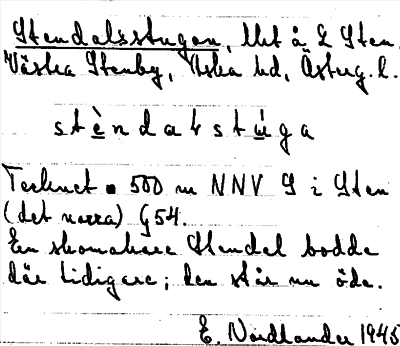 Stendalsstugan, lht å L Sten,
Västra Stenby, Aska hd, Österg.l.
stènda4stu̇ga
Tecknet ▪ 500 m NNV S i Sten
(det norra) G54.
En skomakare Stendal bodde
där tidigare; den står nu öde.
E. Nordlander 1945